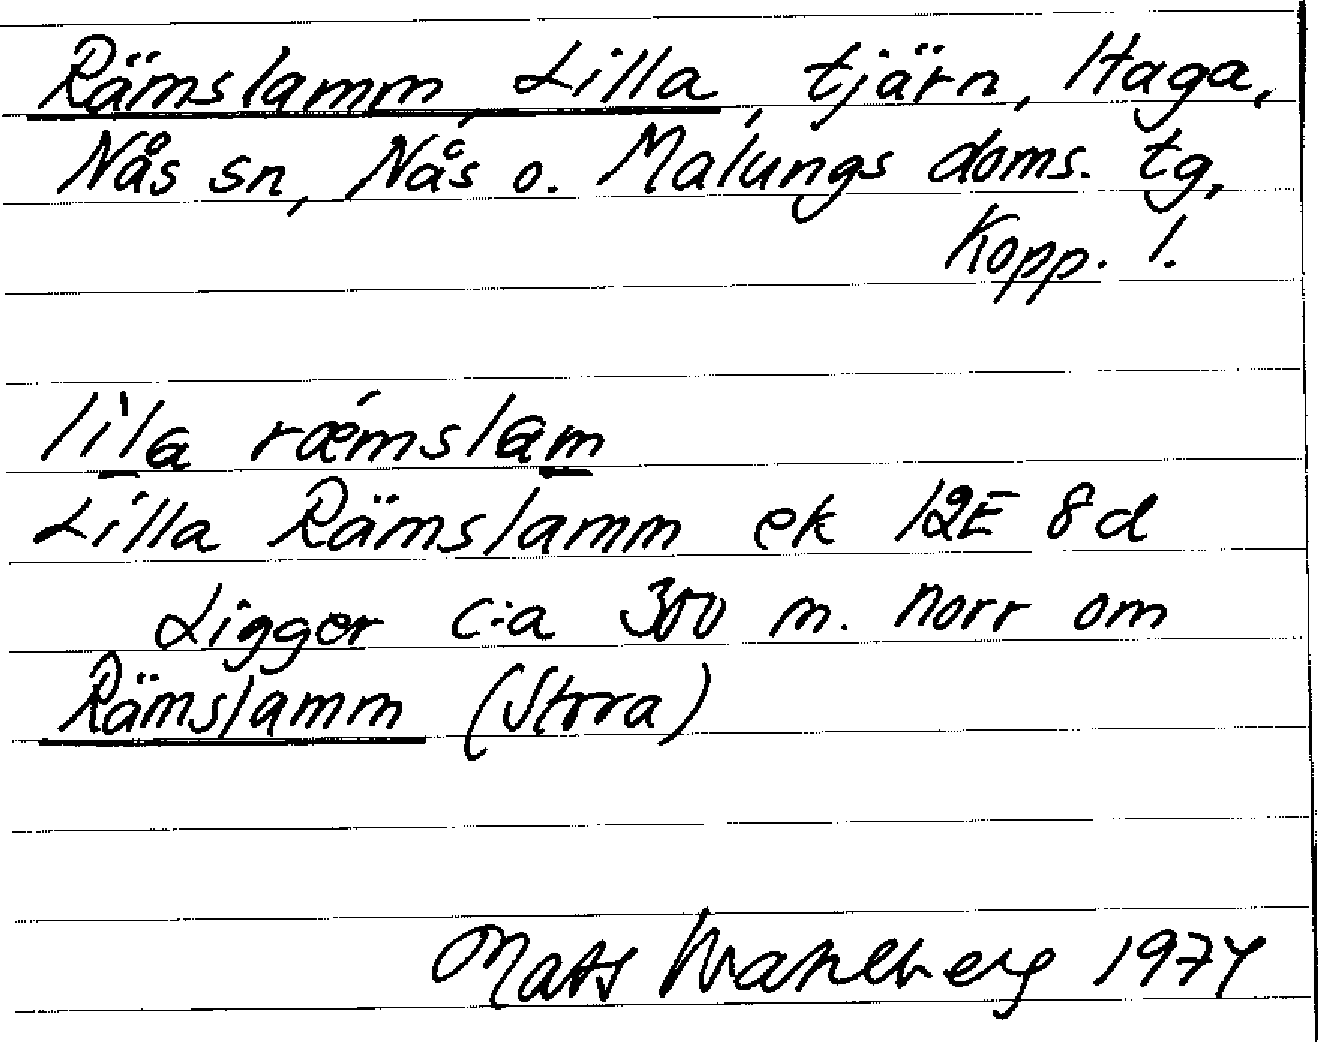 Rämslamm, Lilla, tjärn, Haga,
Nås sn, Nås o. Malungs doms. tg,
Kopp. l.
li̱la ræ´mslam̱
Lilla Rämslamm ek 12E 8d
Ligger c:a 300 m. norr om
Rämslamm (Stora)
Mats Wahlberg 1974